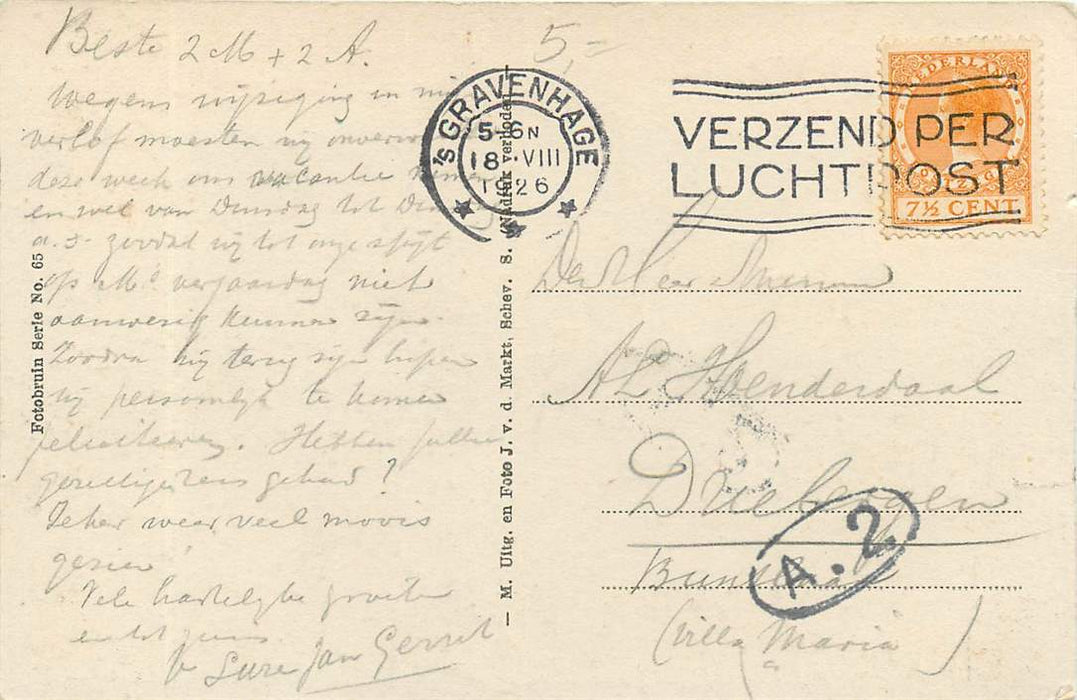 Beste 2 M + 2 A.
Wegens wijziging in mijn
verlof moesten wij onverw
deze week ons vacantie nemen
en wel van Dinsdag tot Din
a.s. zoodat wij tot onze spijt
op M's verjaardag niet
aanwezig kunnen zijn.
Zoodra wij terug zijn hopen
wij persoonlijk te komen
feliciteeren. Hebben jullie
gezellige reis gehad?
Zeker weer veel moois
gezien
Vele hartelijke groeten
en tot ziens
Jan Gerrit
Fotobruin Serie No. 65
— M. Uitg. en Foto J. v. d. Markt, Schev. S. Nadruk verboden
5,-
'S GRAVENHAGE
5-6 N
18 VIII
1926
VERZEND PER
LUCHTPOST
NEDERLAND
7½ CENT
Den Heer
A L Hoenderdaal
Driebergen
(Villa Maria)
A.2